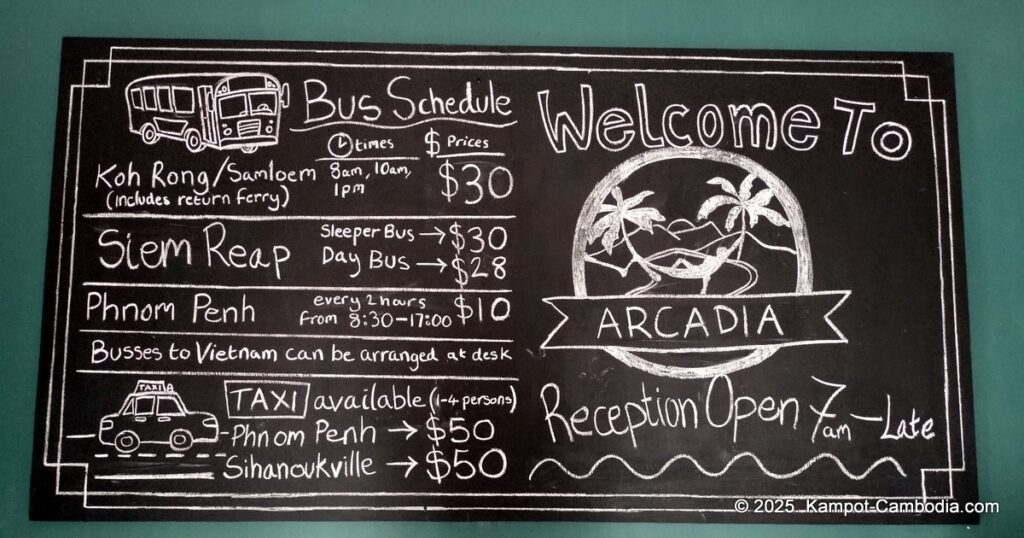 Bus Schedule
times $ Prices
Koh Rong/Samloem 8am, 10am, $30
(includes return ferry) 1pm
Siem Reap Sleeper Bus → $30
Day Bus → $28
Phnom Penh every 2 hours $10
from 8:30-17:00
Busses to Vietnam can be arranged at desk
TAXI
TAXI available (1-4 persons)
Phnom Penh → $50
Sihanoukville → $50
Welcome To
ARCADIA
Reception Open 7am - Late
© 2025 Kampot-Cambodia.com